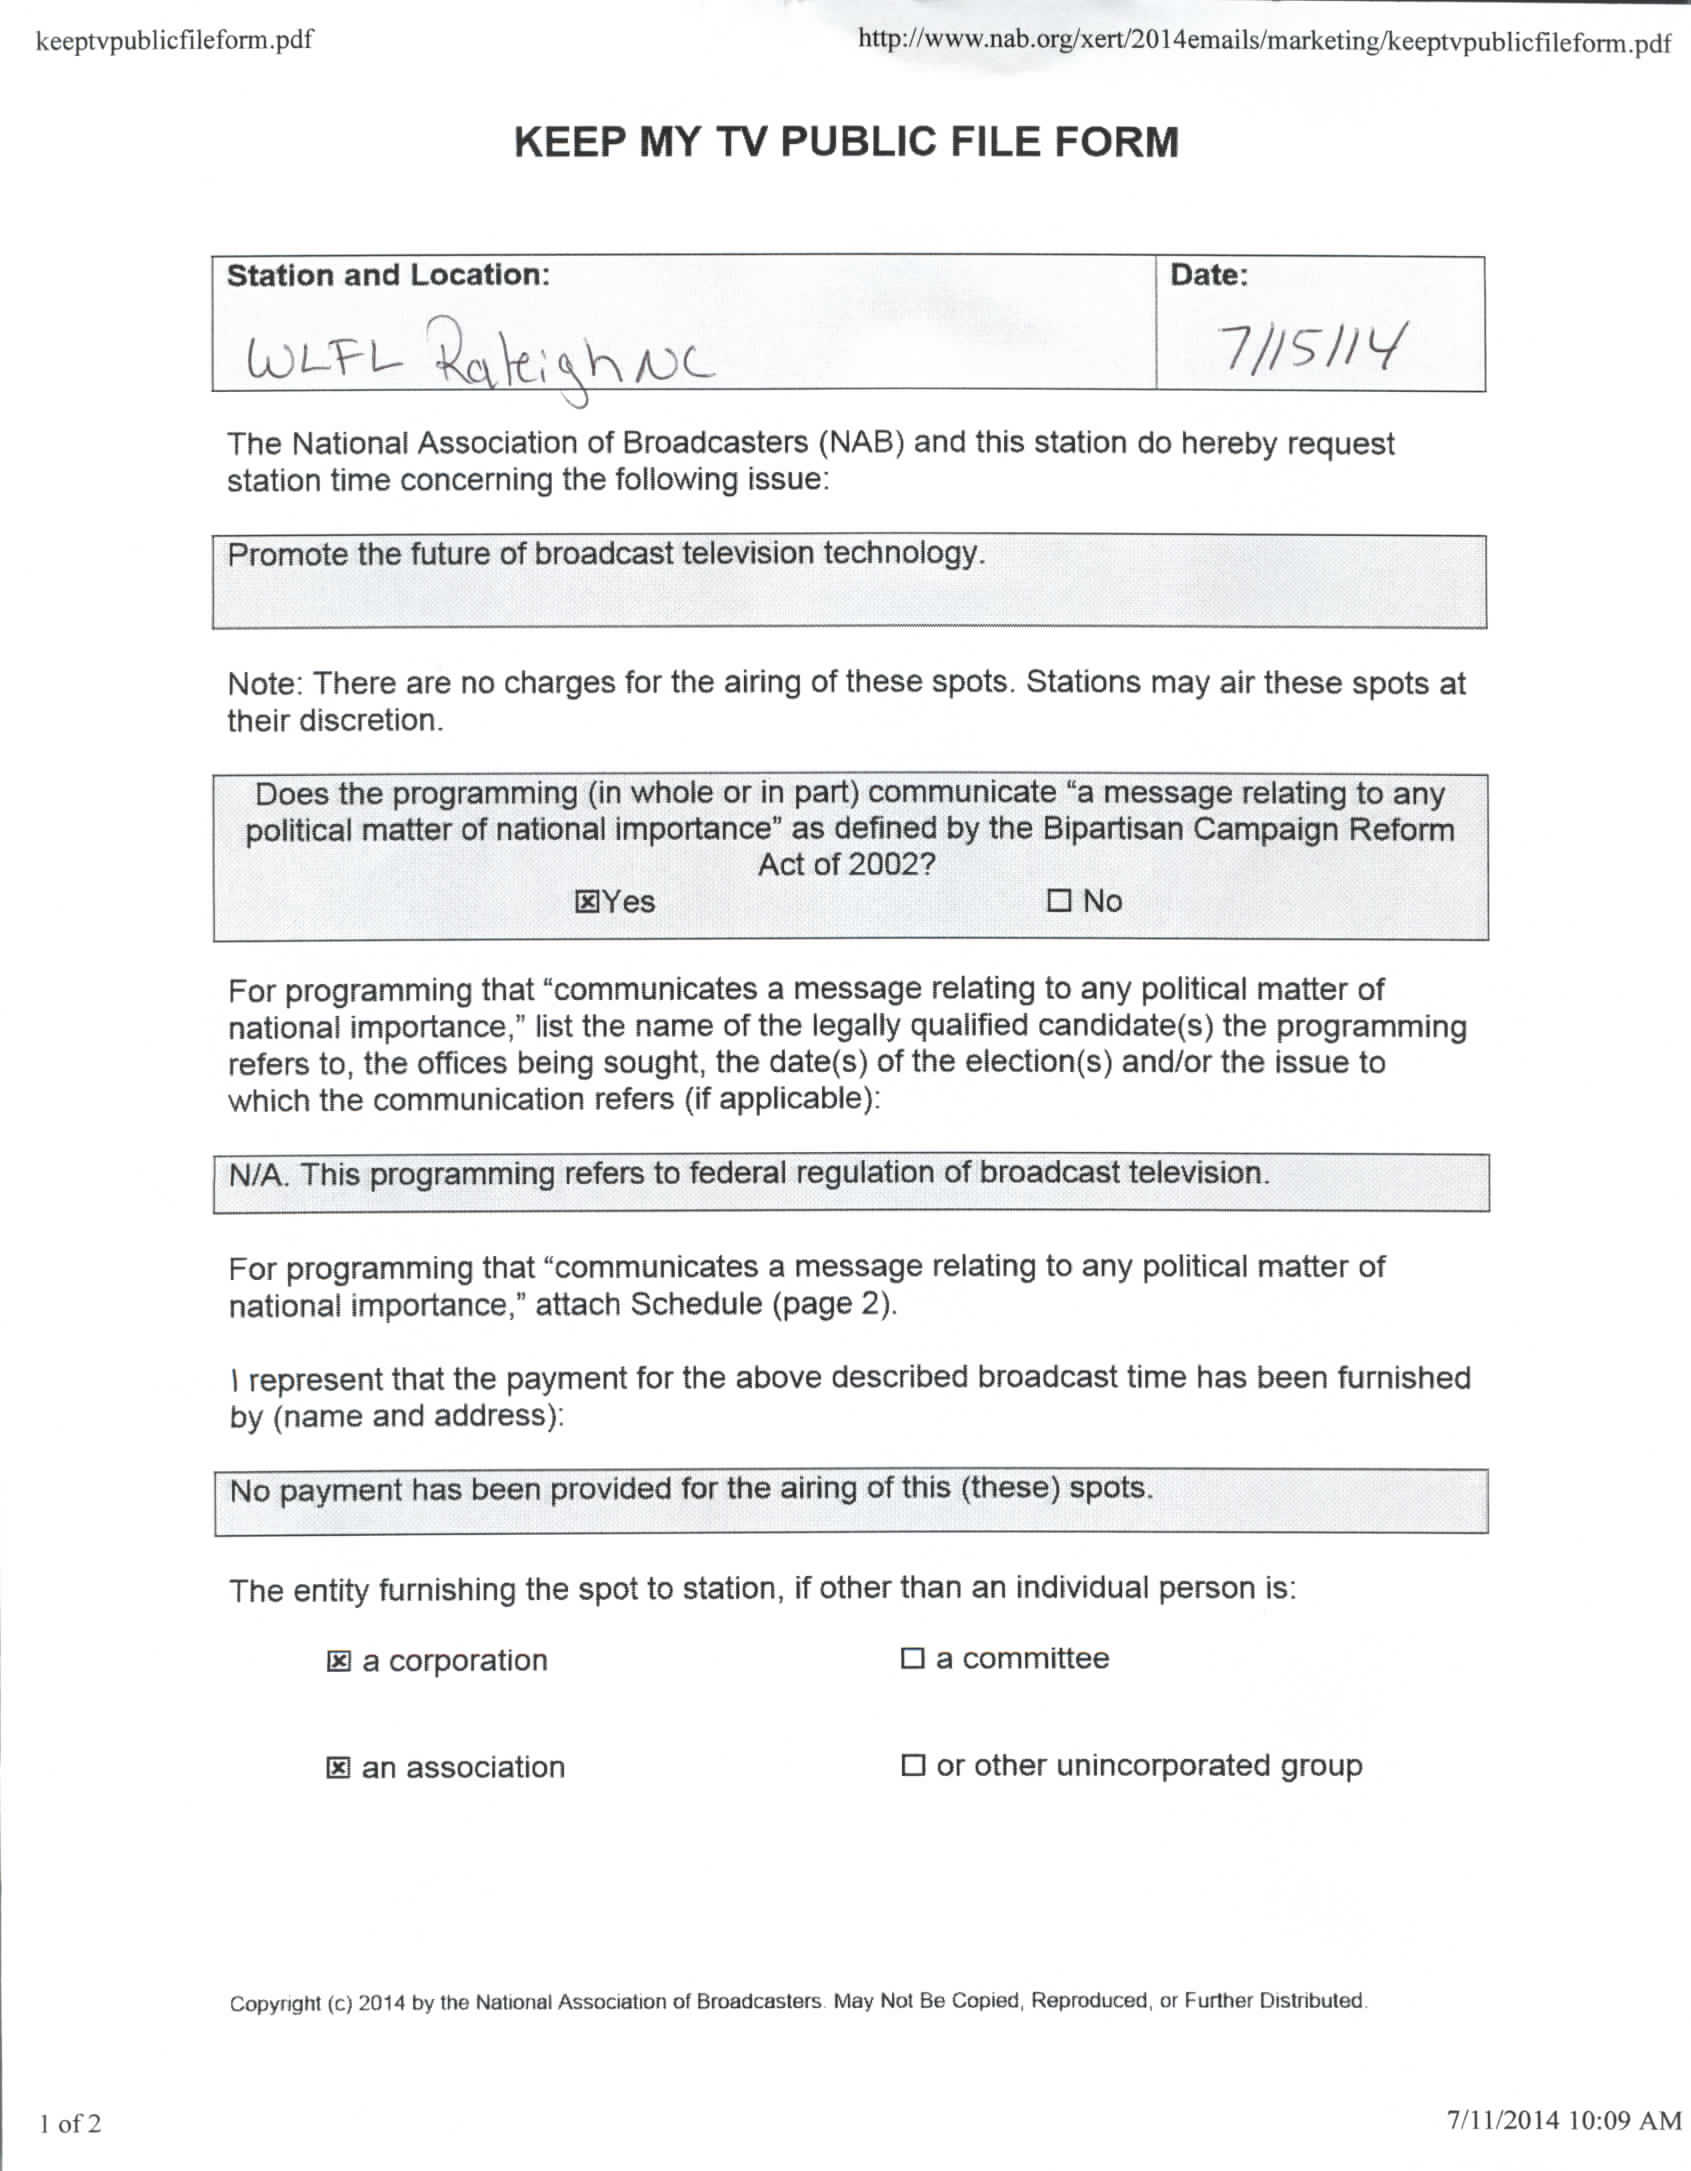 keeptvpublicfileform.pdf
http://www.nab.org/xert/2014emails/marketing/keeptvpublicfileform.pdf
KEEP MY TV PUBLIC FILE FORM
Station and Location:
Date:
WLFL Raleigh NC
7/15/14
The National Association of Broadcasters (NAB) and this station do hereby request
station time concerning the following issue:
Promote the future of broadcast television technology.
Note: There are no charges for the airing of these spots. Stations may air these spots at
their discretion.
Does the programming (in whole or in part) communicate “a message relating to any
political matter of national importance” as defined by the Bipartisan Campaign Reform
Act of 2002?
☒Yes
☐ No
For programming that “communicates a message relating to any political matter of
national importance,” list the name of the legally qualified candidate(s) the programming
refers to, the offices being sought, the date(s) of the election(s) and/or the issue to
which the communication refers (if applicable):
N/A. This programming refers to federal regulation of broadcast television.
For programming that “communicates a message relating to any political matter of
national importance,” attach Schedule (page 2).
I represent that the payment for the above described broadcast time has been furnished
by (name and address):
No payment has been provided for the airing of this (these) spots.
The entity furnishing the spot to station, if other than an individual person is:
☒ a corporation
☐ a committee
☒ an association
☐ or other unincorporated group
Copyright (c) 2014 by the National Association of Broadcasters. May Not Be Copied, Reproduced, or Further Distributed.
1 of 2
7/11/2014 10:09 AM